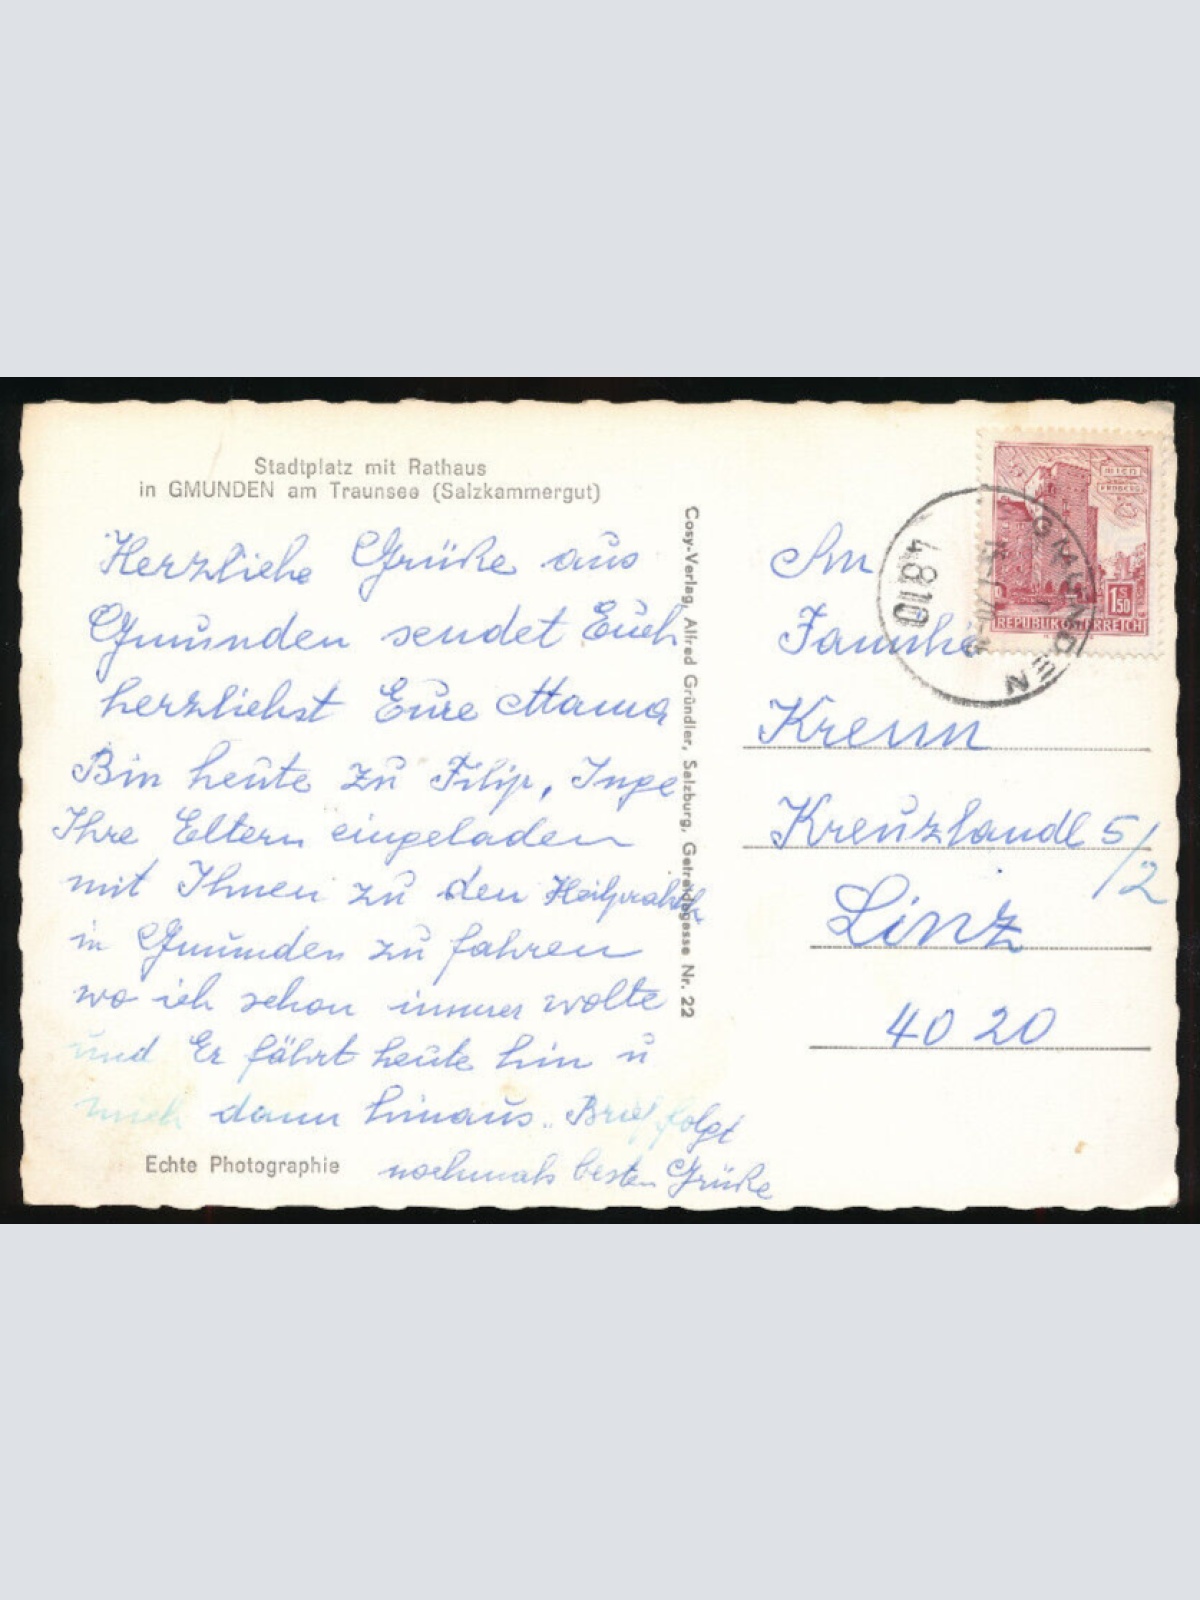 Stadtplatz mit Rathaus
in GMUNDEN am Traunsee (Salzkammergut)
Herzliche Grüße aus
Gmunden sendet Euch
herzlichst Eure Mama
Bin heute zu Filip, Inge
Ihre Eltern eingeladen
mit Ihnen zu den
in Gmunden zu fahren
wo ich schon immer wolte
und Er fährt heute hin u
mich dann hinaus. Brief folgt
nochmals besten Grüße
Echte Photographie
Cosy-Verlag, Alfred Gründler, Salzburg, Getreidegasse Nr. 22
WIEN
ERDBERG
S
1.50
REPUBLIK ÖSTERREICH
GMUNDEN
4810
An
Familie
Krenn
Kreuzlandl 5/2
Linz
4020